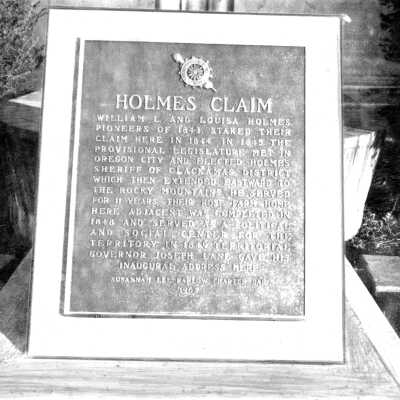 HOLMES CLAIM
WILLIAM L. AND LOUISA HOLMES,
PIONEERS OF 1843, STAKED THEIR
CLAIM HERE IN 1844. IN 1845 THE
PROVISIONAL LEGISLATURE MET IN
OREGON CITY AND ELECTED HOLMES
SHERIFF OF CLACKAMAS DISTRICT
WHICH THEN EXTENDED EASTWARD TO
THE ROCKY MOUNTAINS. HE SERVED
FOR 11 YEARS. THEIR ROSE FARM HOME
HERE ADJACENT WAS COMPLETED IN
1848 AND SERVED AS A POLITICAL
AND SOCIAL CENTER FOR THE
TERRITORY. IN 1849 TERRITORIAL
GOVERNOR JOSEPH LANE GAVE HIS
INAUGURAL ADDRESS HERE.
SUSANNAH LEE BARLOW CHAPTER DAR